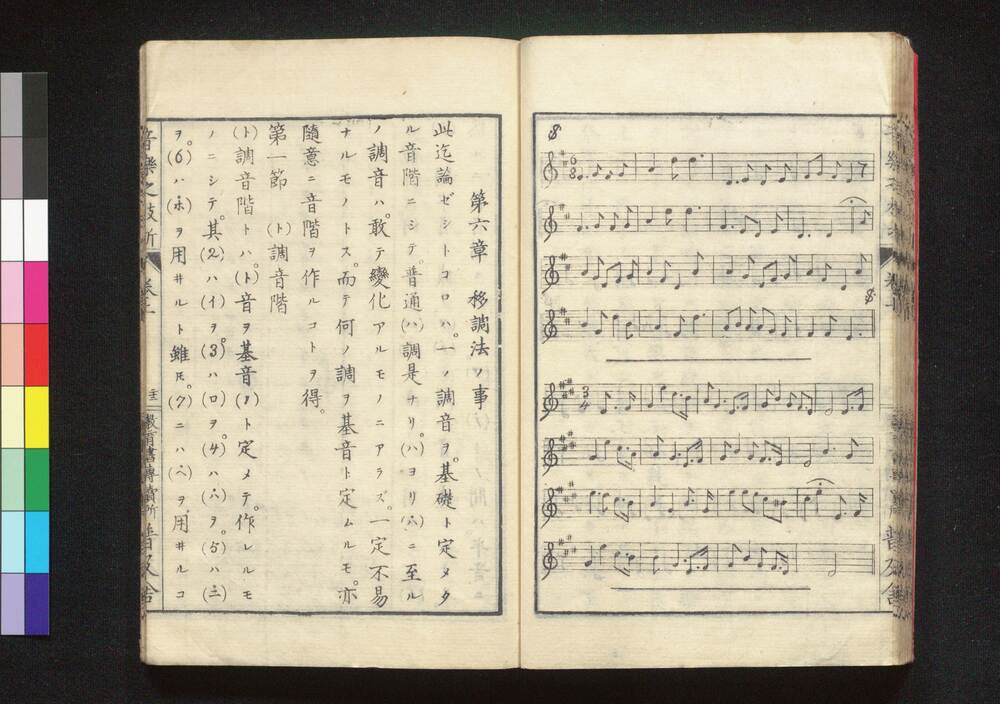 6/8
3/4
第六章 移調法ノ事
此迄論ゼシトコロハ。一ノ調音ヲ。基礎ト定メタ
ル音階ニシテ。普通(ハ)調是ナリ。(ハ)ヨリ(ハ)ニ至ル
ノ調音ハ。敢テ變化アルモノニアラズ。一定不易
ナルモノトス。而テ何ノ調ヲ基音ト定ムルモ。亦
隨意ニ音階ヲ作ルコトヲ得。
第一節 (ト)調音階
(ト)調音階トハ。(ト)音ヲ基音(1)ト定メテ。作レルモ
ノニシテ。其(2)ハ(イ)ヲ。(3)ハ(ロ)ヲ。(4)ハ(ハ)ヲ。(5)ハ(ニ)
ヲ。(6)ハ(ホ)ヲ用井ルト雖𪜈。(7)ニハ(ヘ)ヲ。用井ルコ